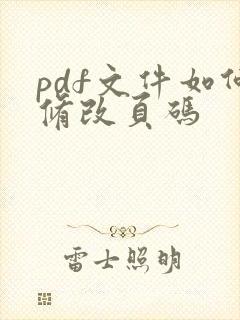 pdf文件如何
修改页码
雷士照明